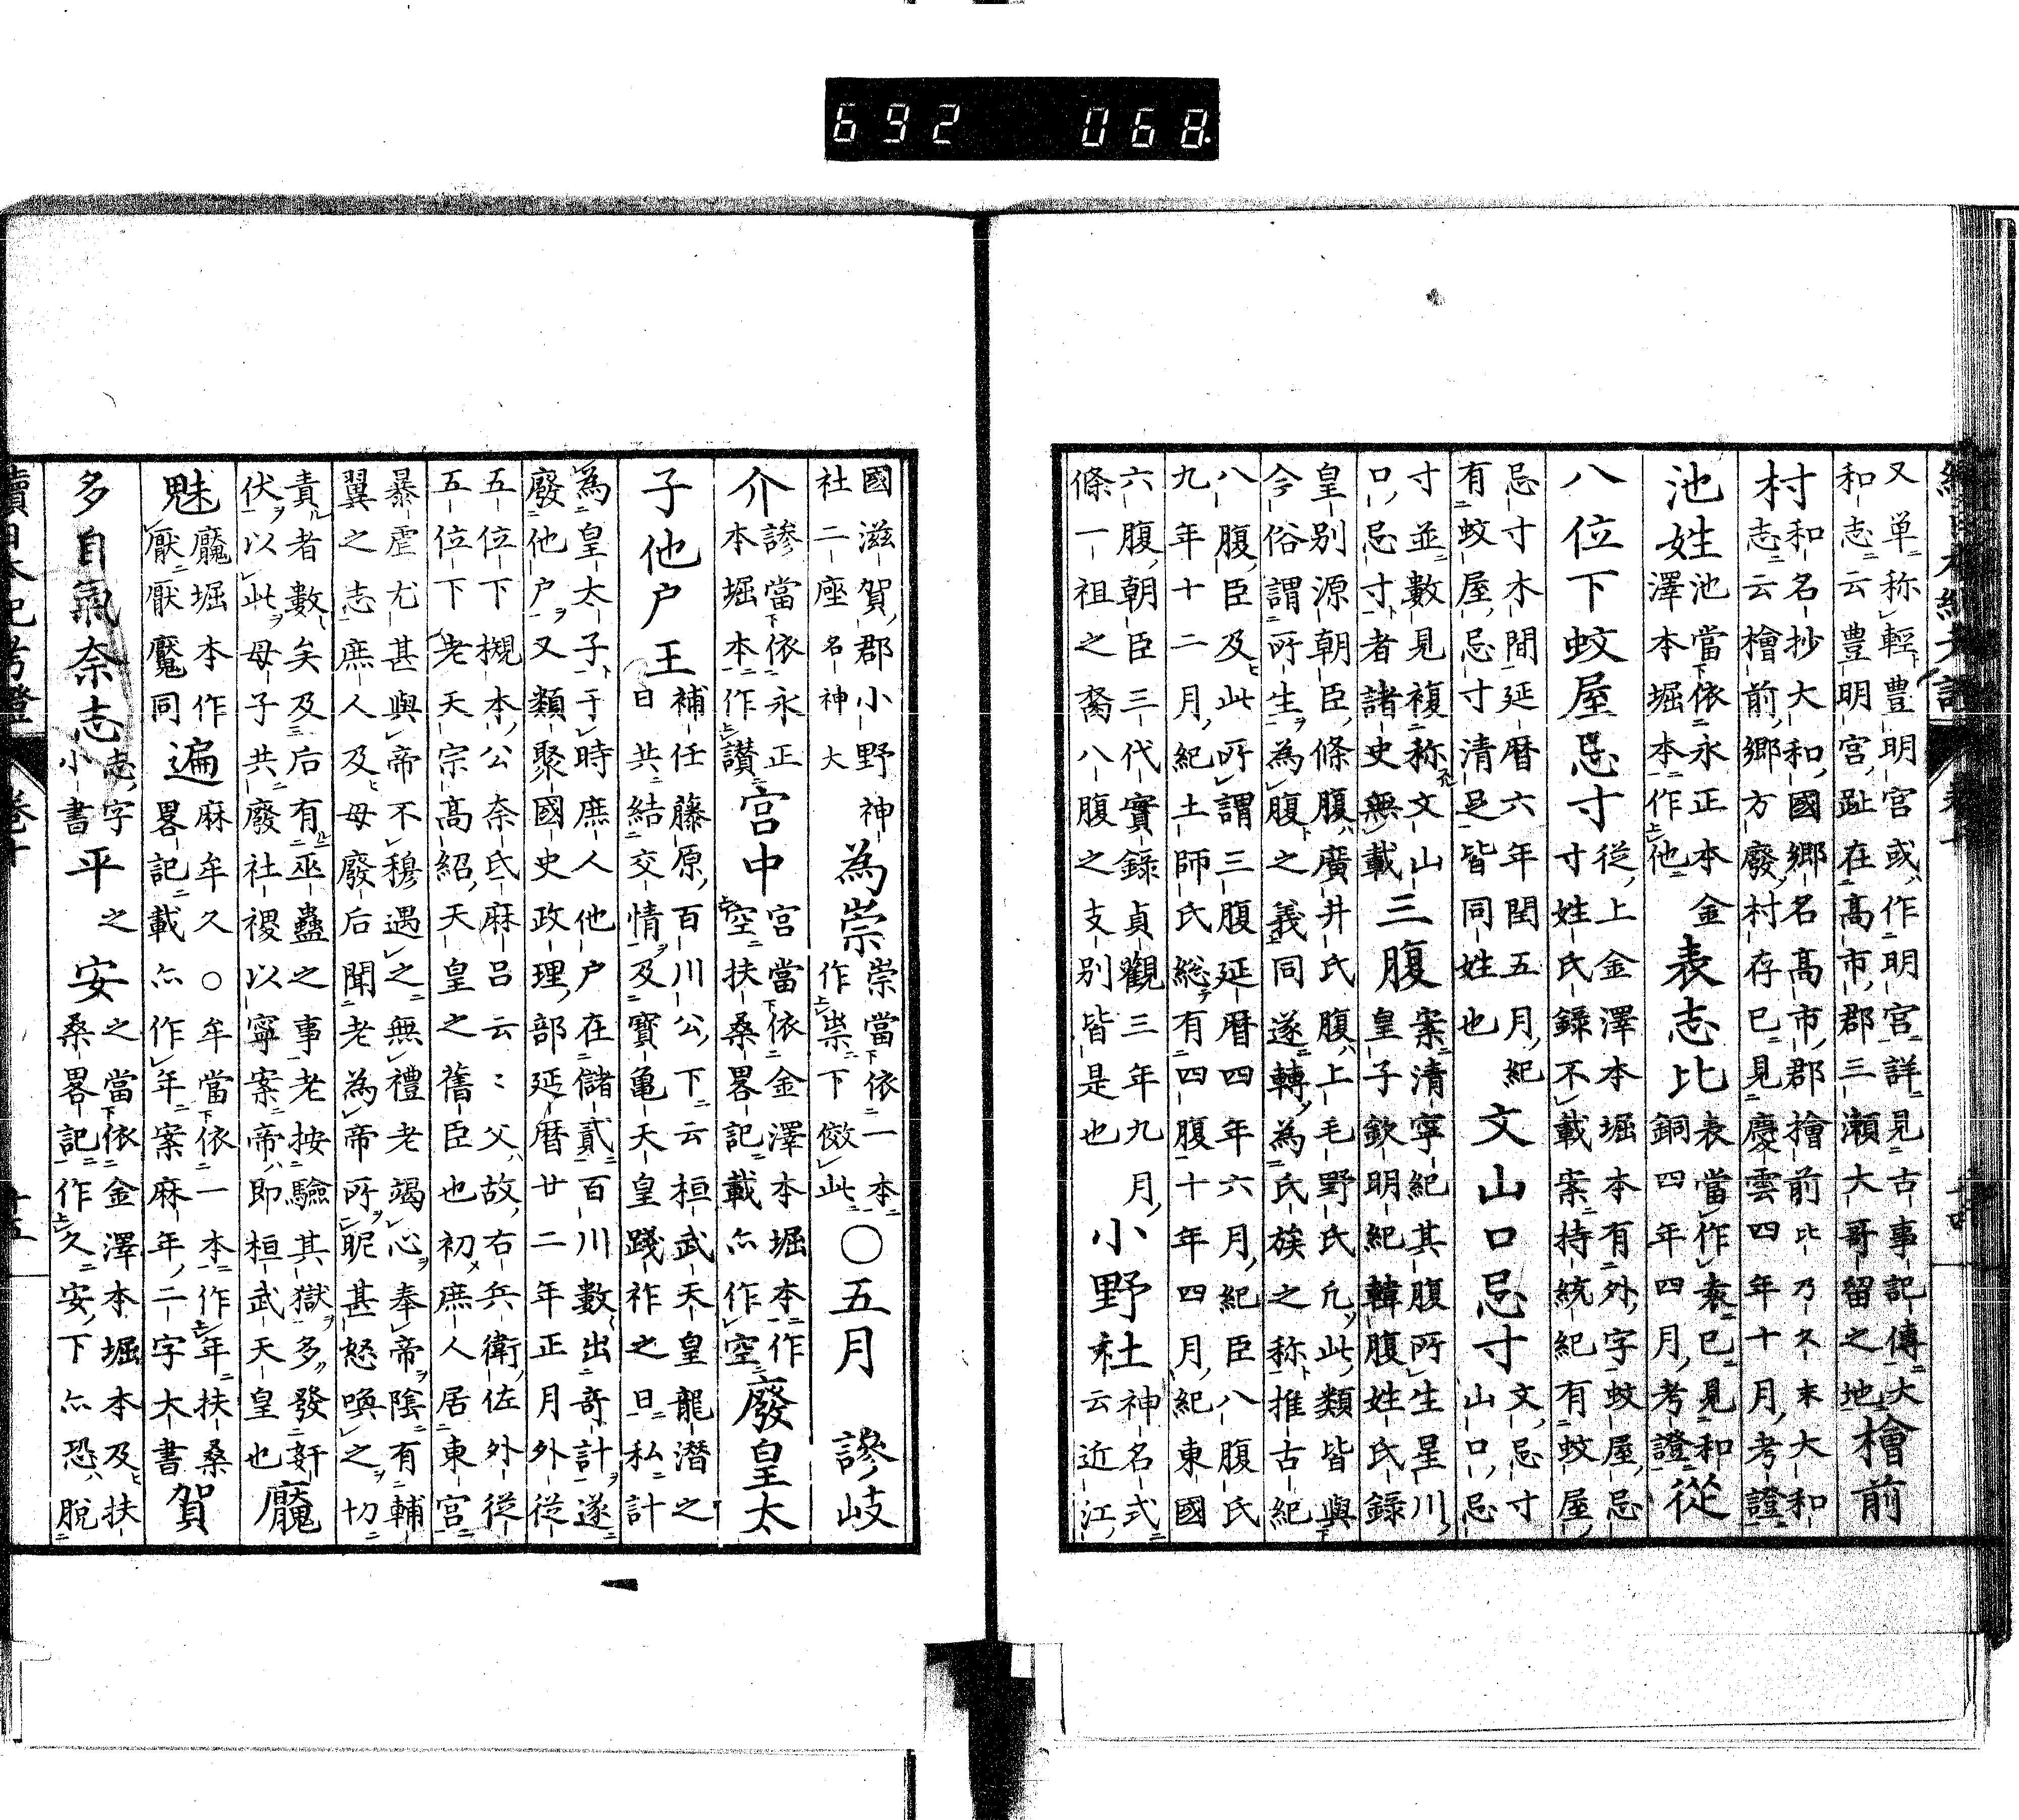 又単称軽豊明宮或作明宮詳見古事記傳大
和志云豊明宮趾在高市郡三瀬大哥留之地
檜前
村
和名抄大和國郷名高市郡檜前比乃久末大和
志云檜前郷方廢村存已見慶雲四年十月考證
池姓
池當依永正本金
澤本堀本作他
表志比
表當作袁已見和
銅四年四月考證
從
八位下蚊屋忌寸
從上金澤本堀本有外字蚊屋忌
寸姓氏録不載案持統紀有蚊屋
忌寸木間延暦六年閏五月紀
有蚊屋忌寸清足皆同姓也
文山口忌寸
文忌寸
山口忌
寸並數見複称文山
口忌寸者諸史無載
三腹
案清寧紀其腹所生星川
皇子欽明紀韓腹姓氏録
皇別源朝臣條腹廣井氏腹上毛野氏凢此類皆與
今俗謂所生為腹之義同遂轉為氏族之称推古紀
八腹臣及此所謂三腹延暦四年六月紀臣八腹氏
九年十二月紀土師氏総有四腹十年四月紀東國
六腹朝臣三代實録貞觀三年九月
條一祖之裔八腹之支別皆是也
小野社
神名式
云近江
國滋賀郡小野神
社二座名神大
為崇
崇當依一本
作祟下傚此
〇五月 謲岐
介
謲當依永正
本堀本作讃
宮中
宮當依金澤本堀本作
空扶桑畧記載亦作空
廢皇太
子他户王
補任藤原百川公下云桓武天皇龍潛之
日共結交情及寳亀天皇踐祚之日私計
為皇太子于時庶人他户在儲貳百川數出奇計遂
廢他户又類聚國史政理部延暦廿二年正月外從
五位下槻本公奈氐麻呂云云父故右兵衛佐外從
五位下老天宗高紹天皇之舊臣也初庶人居東宮
暴虐尤甚與帝不穆遇之無禮老竭心奉帝陰有輔
翼之志庶人及母廢后聞老為帝所昵甚怒喚之切
責者數矣及后有巫蠱之事老按驗其獄多發奸
伏以此母子共廢社稷以寧案帝即桓武天皇也
魘
魅
魘堀本作魘
厭厭魘同
遍
麻牟久〇牟當依一本作年扶桑
畧記載亦作年案麻年二字大書
賀
多自氣奈志
志字
小書
平
之
安
之當依金澤本堀本及扶
桑畧記作久安下亦恐脫
十四
十五